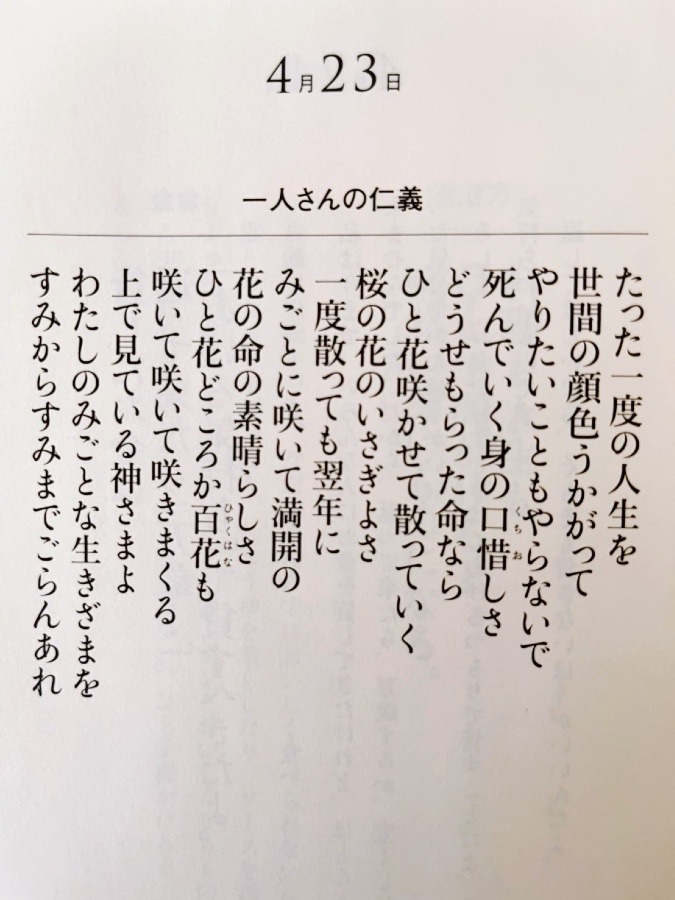 4月23日
一人さんの仁義
たった一度の人生を
世間の顔色うかがって
やりたいこともやらないで
死んでいく身の口惜しさ
どうせもらった命なら
ひと花咲かせて散っていく
桜の花のいさぎよさ
一度散っても翌年に
みごとに咲いて満開の
花の命の素晴らしさ
ひと花どころか百花も
咲いて咲いて咲きまくる
上で見ている神さまよ
わたしのみごとな生きざまを
すみからすみまでごらんあれ
くちお
ひゃくはな